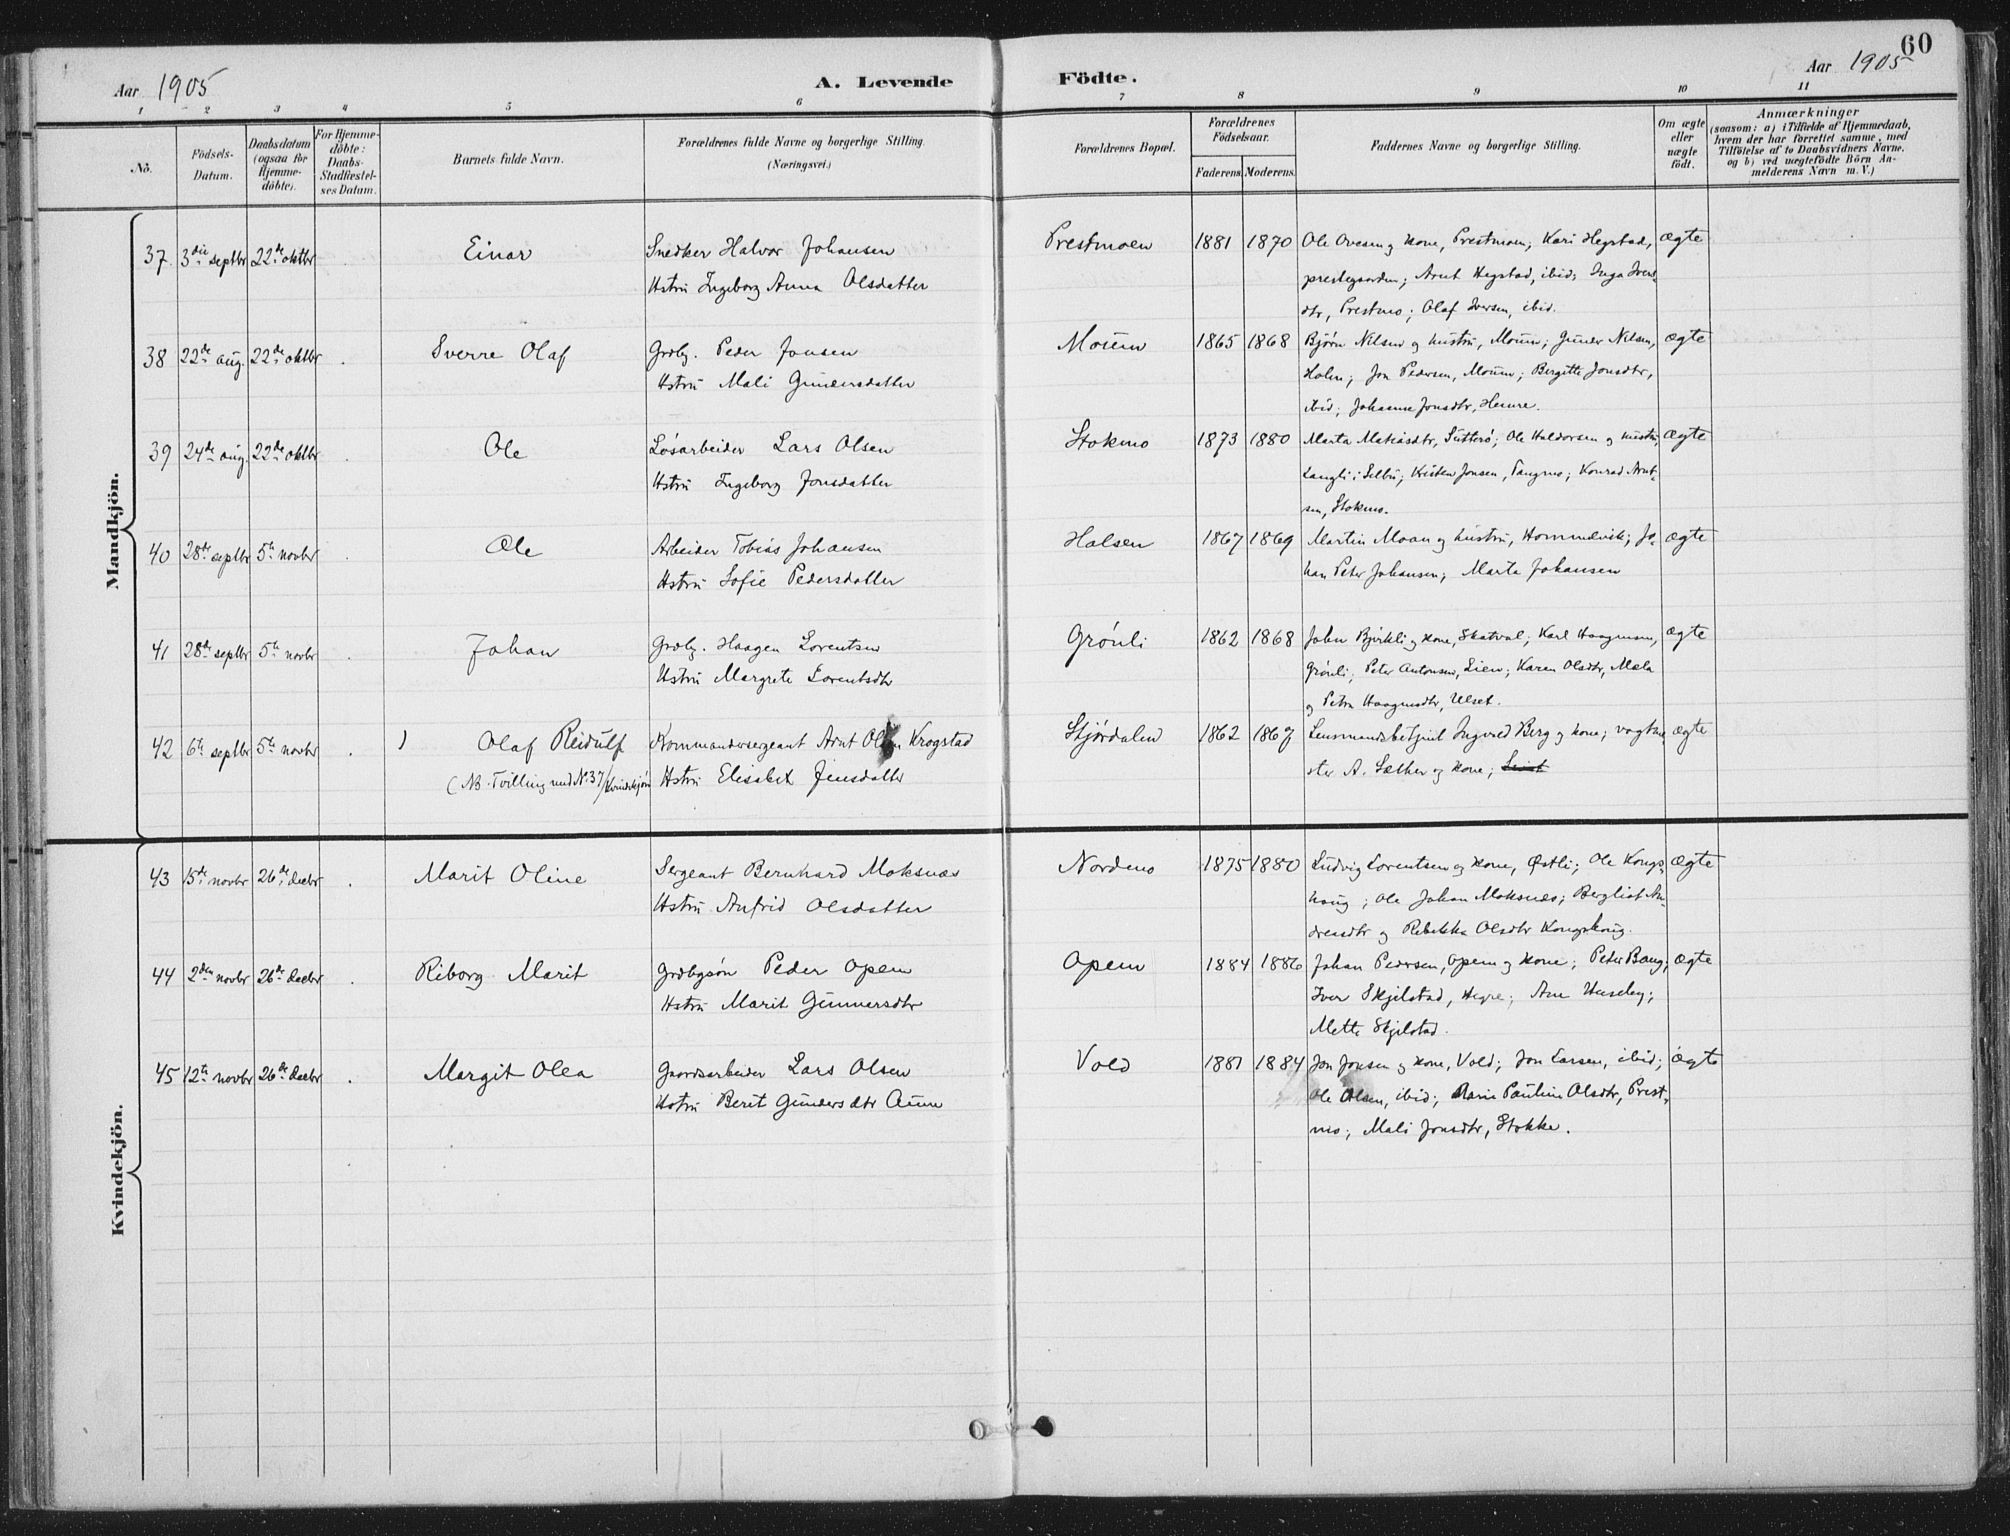 60
Aar 1905
A. Levende Födte.
Aar 1905
1 2 3 4 5 6 7 8 9 10 11
No.
Födsels-Datum.
Daabsdatum (ogsaa for Hjemme-döbte).
For Hjemme-döbte: Daabs-Stadfæstel-ses Datum.
Barnets fulde Navn.
Forældrenes fulde Navne og borgerlige Stilling.
(Næringsvei.)
Forældrenes Bopæl.
Forældrenes Födselsaar.
Faderens. Moderens.
Faddernes Navne og borgerlige Stilling.
Om ægte eller uægte födt.
Anmærkninger
(saasom: a) i Tilfælde af Hjemmedaab,
hvem der har forrettet samme, med
Tilföielse af to Daabsvidners Navne.
og b) ved uægtefödte Börn An-
melderens Navn m. V.)
Mandkjön.
37. 3die septbr 22de oktbr Einar Snedker Halvor Johansen Prestmoen 1881 1870 Ole Ovesen og kone, Prestmoen; Kari Hegstad, ægte
Hstru Ingeborg Anna Olsdatter prestegaarden; Arnt Hegstad, ibid; Inga Ivers-
dtr, Prestmo; Olaf Iversen, ibid.
38 22de aug. 22de oktbr Sverre Olaf Grdbr. Peder Jonsen Moum 1865 1868 Bjørn Nilsen og hustru, Moum; Gunder Nilsen, ægte
Hstru Mali Gundersdatter Holen; Jon Pedersen, Moum; Bergitte Jonsdtr,
ibid; Johanna Jonsdtr, Hemre.
39 24de aug. 22de oktbr Ole Løsarbeider Lars Olsen Stokmo 1873 1880 Marta Matiasdtr, Sutterø; Ole Haldorsen og hustru, ægte
Hstru Ingeborg Jonsdatter Langli i Selbu; Kristen Jonsen, Tangmo; Konrad Arnt-
sen, Stokmo.
40 28de septbr 5te novbr Ole Arbeider Tobias Johansen Halsen 1867 1869 Martin Moan og hustru, Hommelvik; Jo- ægte
Hstru Sofie Pedersdatter han Peter Johansen; Marta Johansen
41 28de septbr 5te novbr Johan Grdbr. Haagen Lorentsen Grønli 1862 1868 John Bjørkli og kone, Skatval; Karl Haagensen, ægte
Hstru Margrete Lorentsdtr Grønli; Peter Antonsen, Lien; Karen Olsdtr, Mæla
og Petra Haagensdtr, Ulset.
42 6te septbr 5te novbr 1 Olaf Reidulf Kommandersergeant Arnt Olsen Krogstad Stjørdalen 1862 1867 Lensmandsbetjent Ingvald Berg og kone; vagtme- ægte
(NB. Tvilling med No 37/Kvindekjøn Hstru Elisabet Jensdatter ster A. Sæther og kone;
Kvindekjön.
43 15de novbr 26de decbr Marit Oline Sergeant Bernhard Moksnæs Nordmo 1875 1880 Ludvig Lorentsen og kone, Østli; Ole Kongs- ægte
Hstru Anfrid Olsdatter haug; Ole Johan Moksnæs; Bergliot An-
dreasdtr og Rebekka Olsdtr Kongshaug.
44 2den novbr 26de decbr Riborg Marit Grdbgsøn Peder Opem Opem 1884 1886 Johan Pedersen, Opem og kone; Peter Bang; ægte
Hstru Marit Gunnersdtr Iver Skjelstad, Hegre; Ane Huseby;
Mette Skjelstad.
45 12te novbr 26de decbr Margit Olea Gaardsarbeider Lars Olsen Vold 1881 1884 Jon Jonsen og kone, Vold; Jon Larsen, ibid; ægte
Hstru Berit Gundersdtr Aune Ole Olsen, ibid; Marie Pauline Olsdtr, Prest-
mo; Mali Jonsdtr, Stokke.